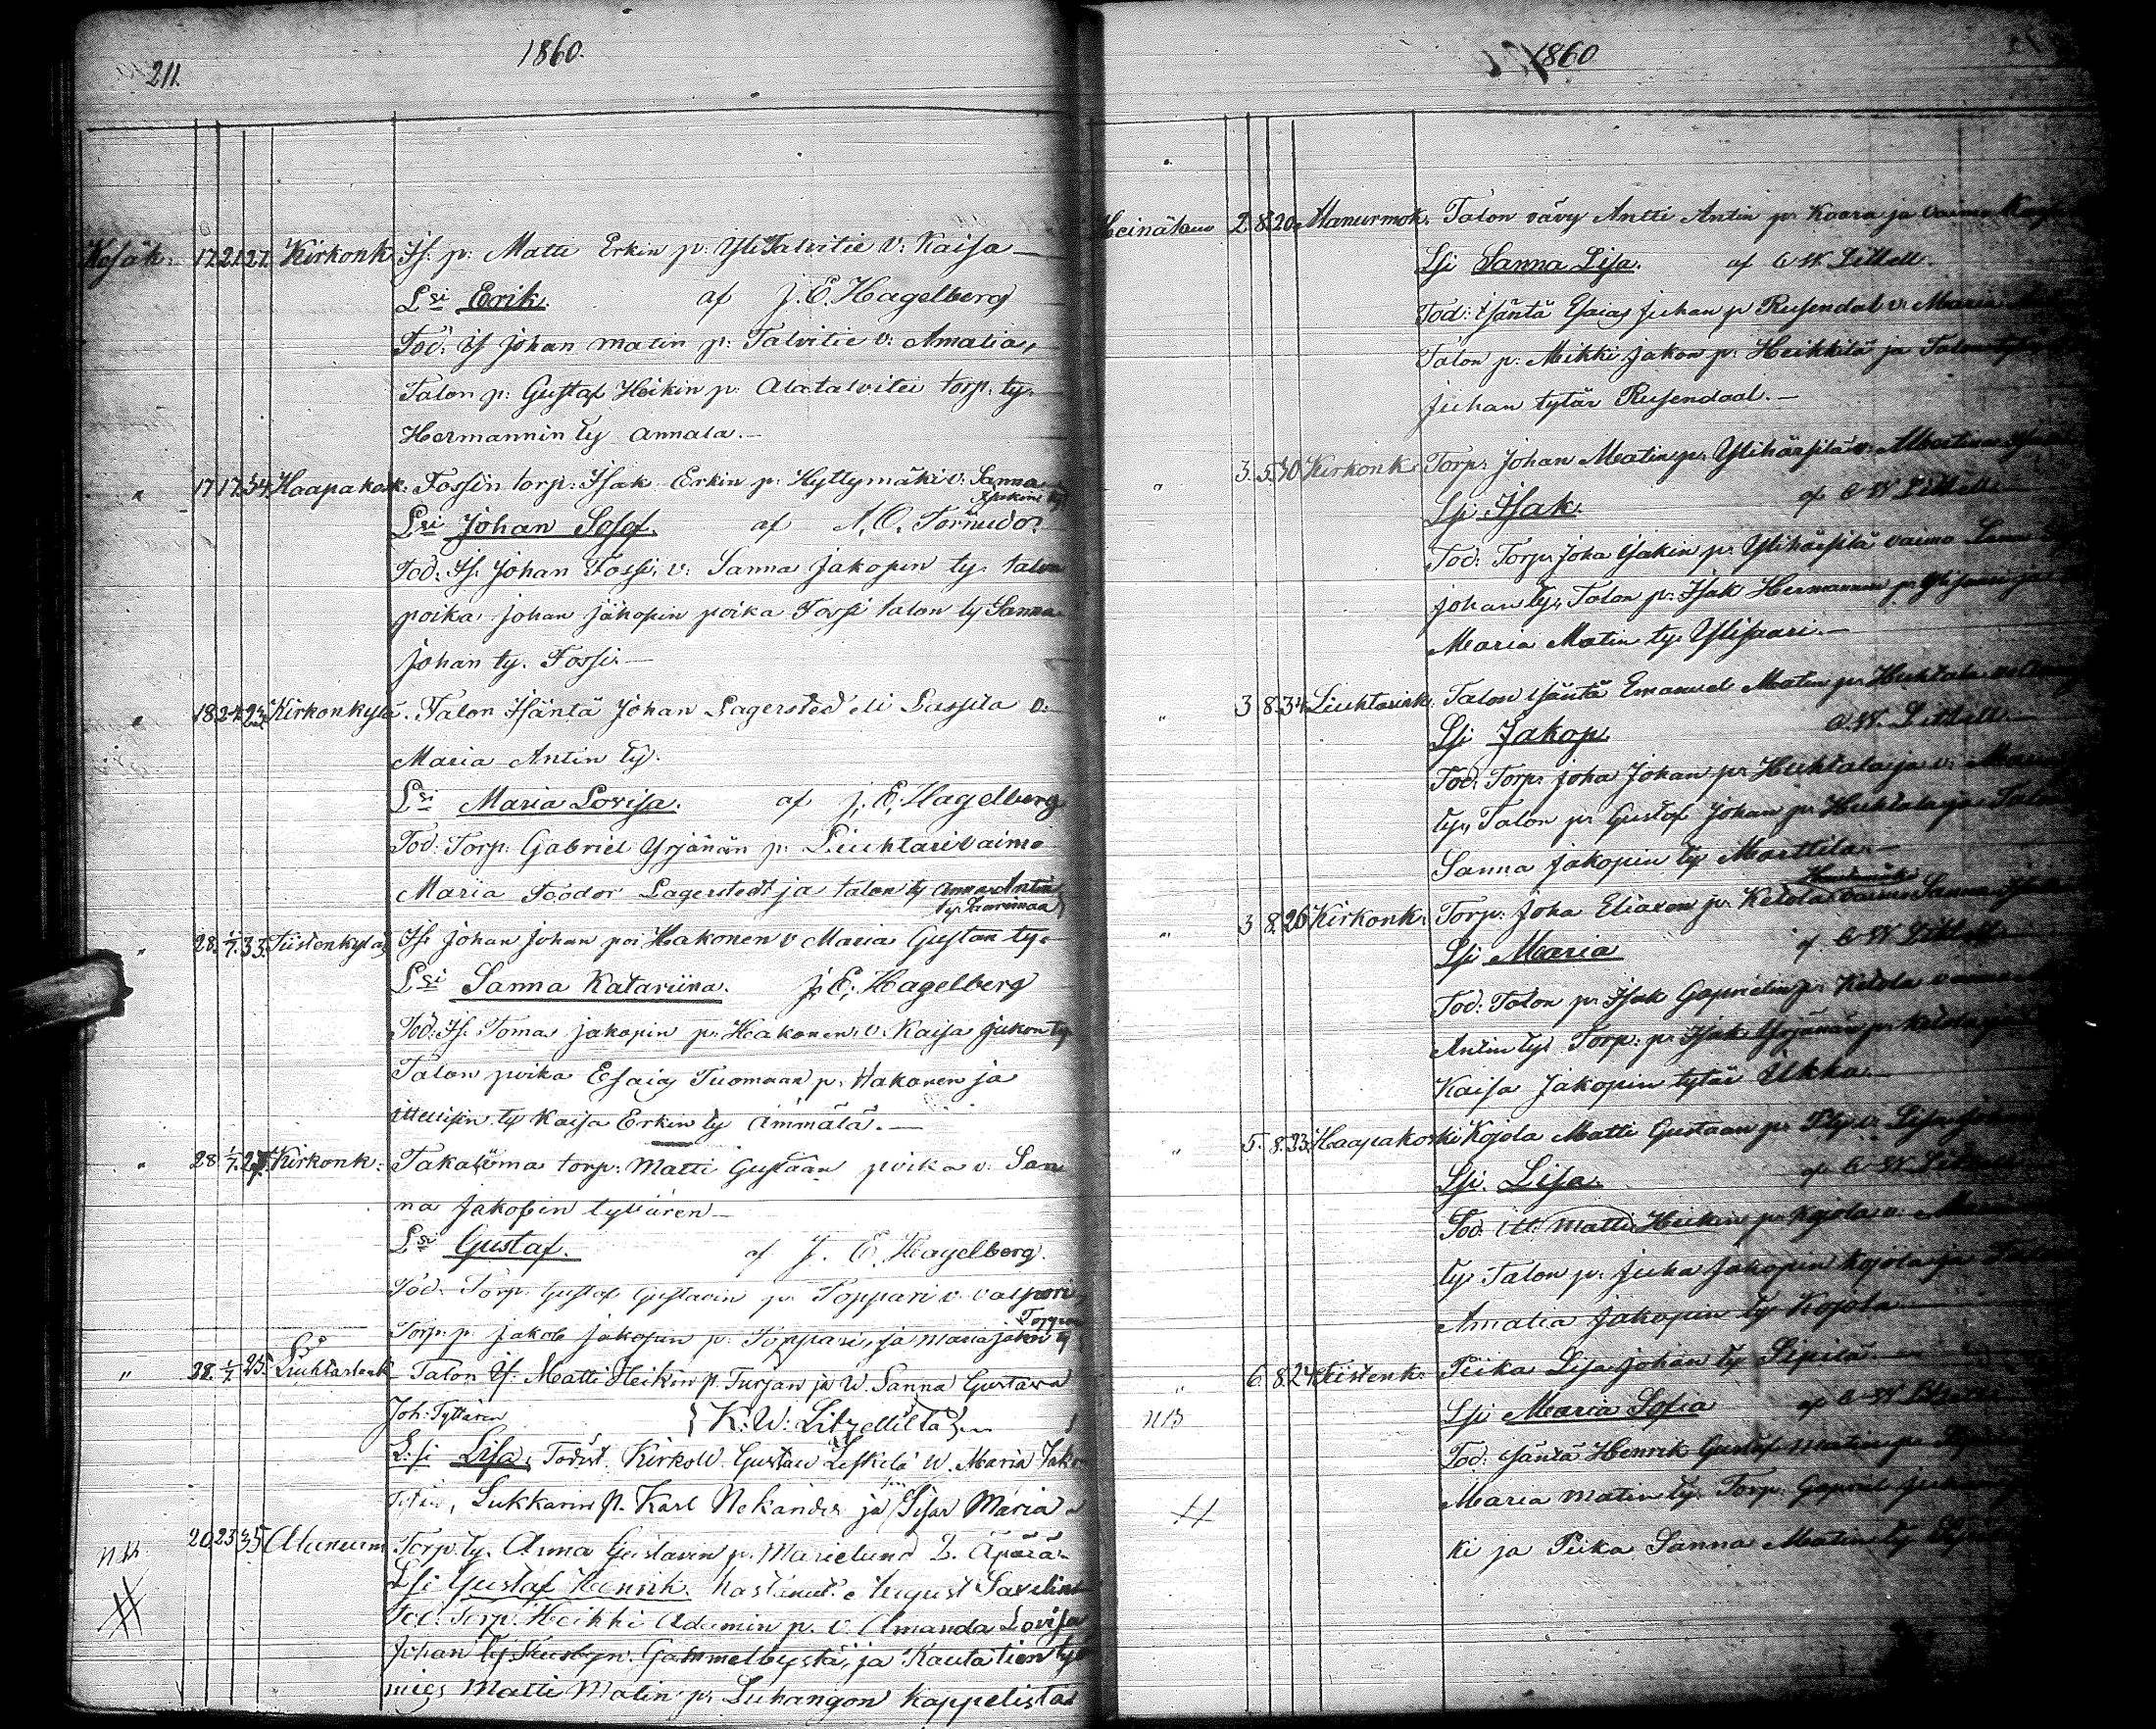 211.
1860.
Kesäk. 17. 21. 27. Kirkonk. Is. p. Matti Erkin p. Yli Talvitie v: Kaisa —
Lsi Erik. af J. E. Hagelberg
Tod: Is Johan Matin p: Talvitie v: Amalia,
Talon p: Gustaf Heikin p: Alatalvitie torp: ty.
Hermannin ty Annala. —
" 17. 17. 34. Haapakosk. Fossin torp: Isak Erkin p: Hyttymäki v: Sanna
Lsi Johan Sosef. af A. O. Törnudo.
Tod: Is. Johan Fossi, v: Sanna Jakopin ty. talon
poika Johan Jakopin poika Fossi talon ty Sanna
Johan ty. Fossi. —
" 18. 24. Kirkonkylä. Talon Isäntä Johan Lagersted eli Lassila v.
Maria Antin ty.
Lsi Maria Lovisa. af J. E. Hagelberg
Tod: Torp: Gabriel Yrjänän p: Liuhtari vaimo
Maria Teodor Lagerstedt ja talon ty Anna Antin
ty.
" 28. 1/7. 33. Tiistenkylä. Is. Johan Johan poi Hakonen v Maria Gustan ty.
Lsi Sanna Katariina. J. E. Hagelberg
Tod: Is. Toma Jakopin p: Hakonen, v. Kaisa Jukon ty
Talon poika Esaias Tuomaan p: Hakonen ja
ittellisen ty Kaisa Erkin ty Ämmälä. —
" 28 1/7. 27. Kirkonk: Takaluoma torp: Matti Gustaan poika v: San
na Jakopin tyttären —
Lsi Gustaf. af J. E. Hagelberg.
Tod: Torp: Gustaf Gustavin p: Toppari v. Valpori
Torp: p: Jakob Jakopin p: Toppari, ja Maria Johan ty
" 28. 1/7 25. Talon Is. Matti Heikin p. Turjan ja W. Sanna Gustava
Joh: Tyttären {K: W: Litzelliltä}
L:si Lisa, Todist. Kirkolt. Gustav Leskelä W. Maria Jako
Lukkarin P. Karl Nekander ja Lisa Maria
NB. 20 23 35 Alanurm Torp. ty. Anna Gustavin p. Marielund L. Äpärä
Lsi Gustaf Henrik. kastanut August Savelin
Tod: Torp: Heikki Adamin p. v. Amanda Lovisa
Johan ty Gammelbystä, ja Rautatien työ
mies Matti Matin p. Luhangon kappelista
1860
Heinäkuu 2. 8. 20. Alanurmok. Talon vävy Antti Antin p. Kaara ja vaimo
Lsi Sanna Lisa. af C W Litzell.
Tod: Isäntä Esaias Juhan p Rusendal v. Maria
Talon p: Mikki Jakon p: Heikkilä ja Talon
Juhan tytär Rusendaal. —
" 3. 5. 40 Kirkonk: Torp: Johan Matin p: Ylihärsilä v: Albertina
Lsi Isak. af C W Litzell
Tod: Torp: Joha Isakin p: Ylihärsilä vaimo Sanna
Johan ty, Talon p: Isak Hermannin p: Ylisaari ja
Maria Matin ty: Ylisaari. —
" 3. 8. 34. Liuhtarink. Talon Isäntä Emanuel Matin p: Huhtala
Lsi Jakop. C. W. Litzell. —
Tod: Torp: Joha Johan p: Huhtala ja v: Maria
ty, Talon p: Gustaf Johan p: Huhtala ja Talon
Sanna Jakopin ty Marttila. —
" 3 8. 26 Kirkonk: Torp: Joha Eliaxon p: Ketola vaimo Sanna
Lsi Maria af C W Litzell
Tod: Talon p: Isak Gaprielin p: Ketola vaimo
Antin ty: Torp: p: Isak Yrjänän p: Ketola ja
Kaisa Jakopin tytär Ukka. —
" 5. 8. 33. Haapakoski Kojola Matti Gustaan p: v: Lisa
Lsi. Lisa. af C W Litzell
Tod. itt: Matti Heikin p: Kojola v: Maria
ty: Talon p: Juha Jakopin Kojola ja Talon
Amalia Jakopin ty Kojola —
" 6. 8. 24. Tiistenk: Piika Lisa Johan ty Sipilä. —
NB Lsi Maria Sofia af C W Litzell
Tod: Isäntä Henrik Gustaf Matin p:
Maria Matin ty: Torp: Gapriel
ki ja Piika Sanna Matin ty